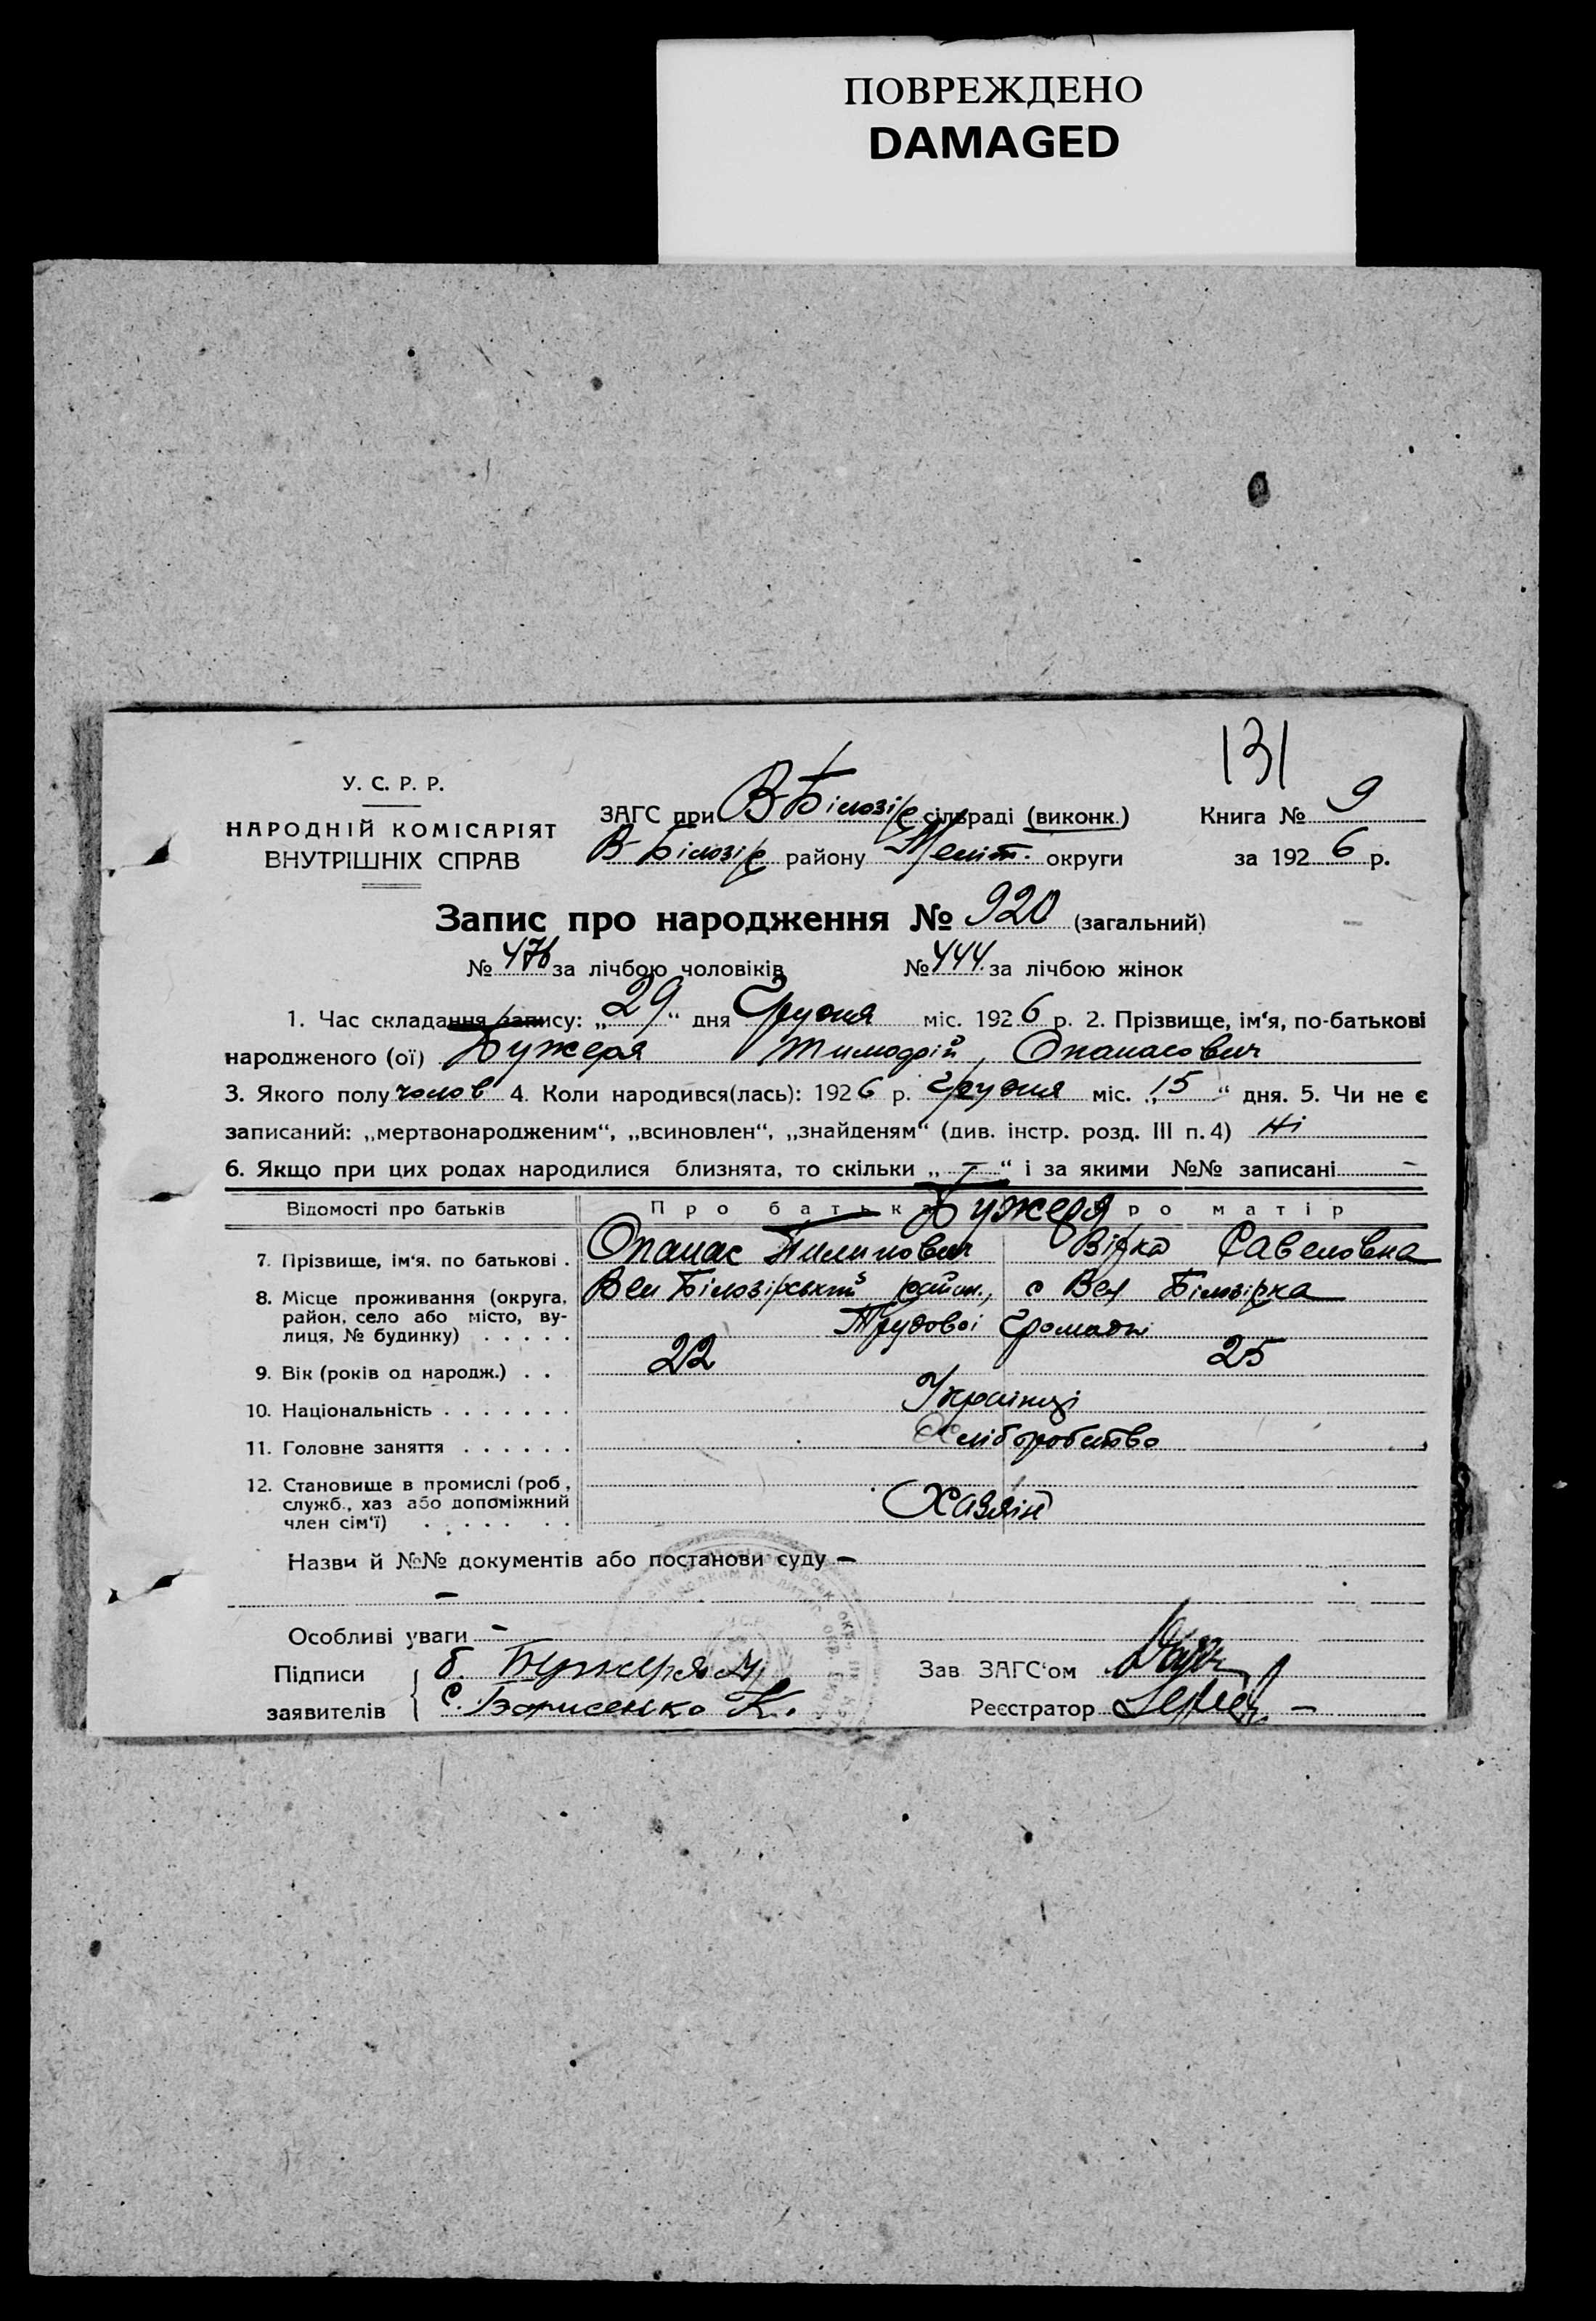 ПОВРЕЖДЕНО
DAMAGED
131
У. С. Р. Р.
НАРОДНІЙ КОМІСАРІЯТ
ВНУТРІШНІХ СПРАВ
ЗАГС при В-Білозір сільраді (виконк.)
Книга № 9
В-Білозір району Меліт. округи
за 1926 р.
Запис про народження № 920 (загальний)
№ 476 за лічбою чоловіків № 444 за лічбою жінок
1. Час складання запису: „29“ дня Грудня міс. 1926 р. 2. Прізвище, ім‘я, по-батькові
народженого (ої) Бужеря Тимофій Опанасович
3. Якого полу чолов 4. Коли народився(лась): 1926 р. Грудня міс. „15“ дня. 5. Чи не є
записаний: „мертвонародженим“, „всиновлен“, „знайденям“ (див. інстр. розд. III п. 4) Ні
6. Якщо при цих родах народилися близнята, то скільки „ – “ і за якими №№ записані –
Відомості про батьків Про батька Бужеря Про матір
7. Прізвище, ім‘я. по батькові . Опанас Пилипович Вірка Савеловна
8. Місце проживання (округа, район, село або місто, вулиця, № будинку) . . . . . Вел Білозірський район., с Вел Білозірка
Трудової Громади
9. Вік (років од народж.) . . 22 25
10. Національність . . . . . . . Українці
11. Головне заняття . . . . . . Хліборобство
12. Становище в промислі (роб, служб., хаз або допоміжний член сім‘ї) . . . . . . . Хазяїн
Назви й №№ документів або постанови суду –
–
Особливі уваги –
Підписи
заявителів
б. Бужеря
с. Борисенко К.
Зав ЗАГС‘ом
Реєстратор